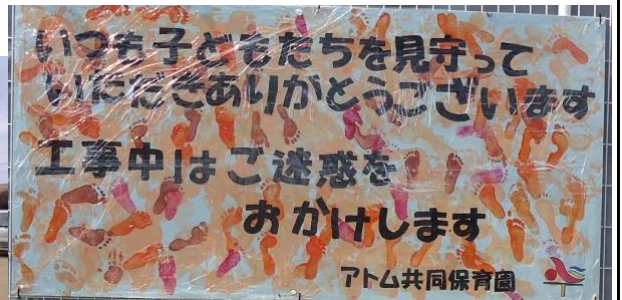 いつも子どもたちを見守って
いただきありがとうございます
工事中はご迷惑を
おかけします
アトム共同保育園